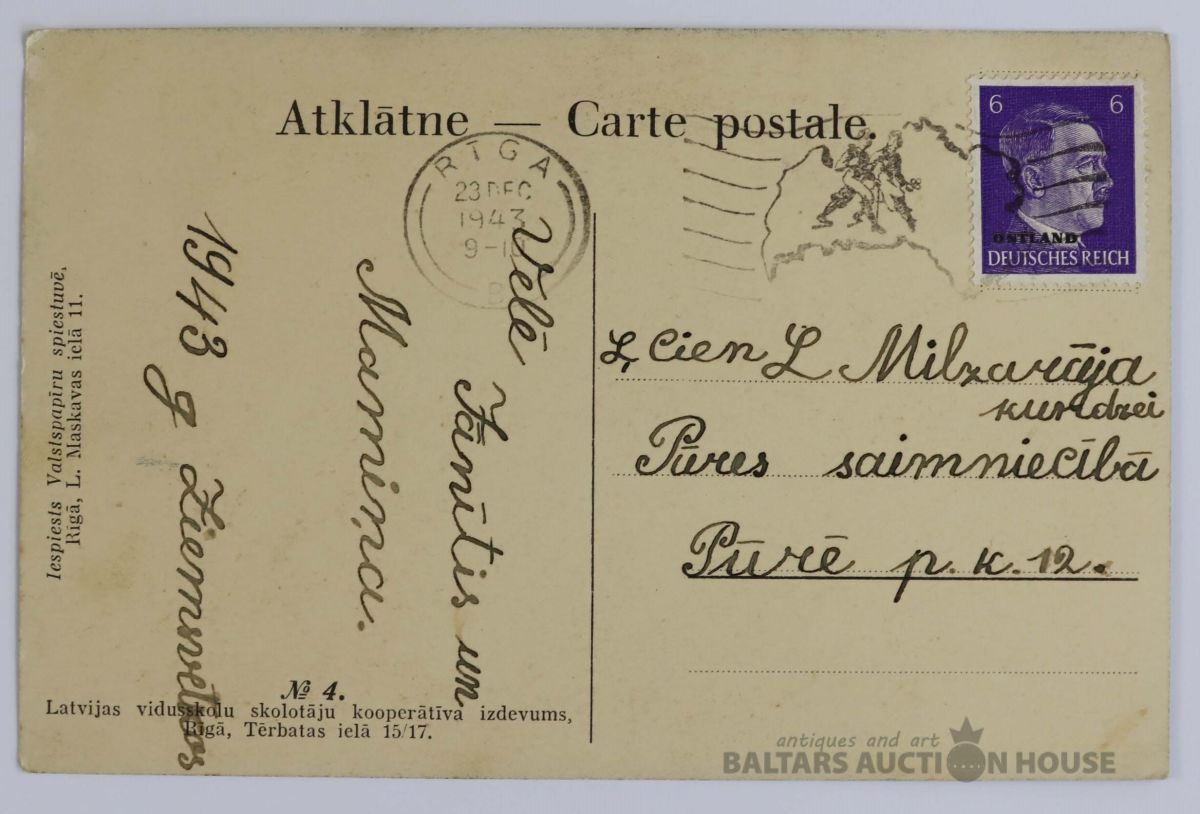 Atklātne — Carte postale.
RĪGA
23 DEC
1943
6 6
OSTLAND
DEUTSCHES REICH
Vēlē
Jānītis un
Mamiņa.
1943 g Ziemsvētkos
Ļ. Cien L Milzarāja
kundzei
Pūres saimniecībā
Pūrē p. k. 12.
Iespiests Valstspapiru spiestuvē,
Rīgā, L. Maskavas ielā 11.
№ 4.
Latvijas vidusskolu skolotāju kooperātīva izdevums,
Rīgā, Tērbatas ielā 15/17.
antiques and art
BALTARS AUCTION HOUSE